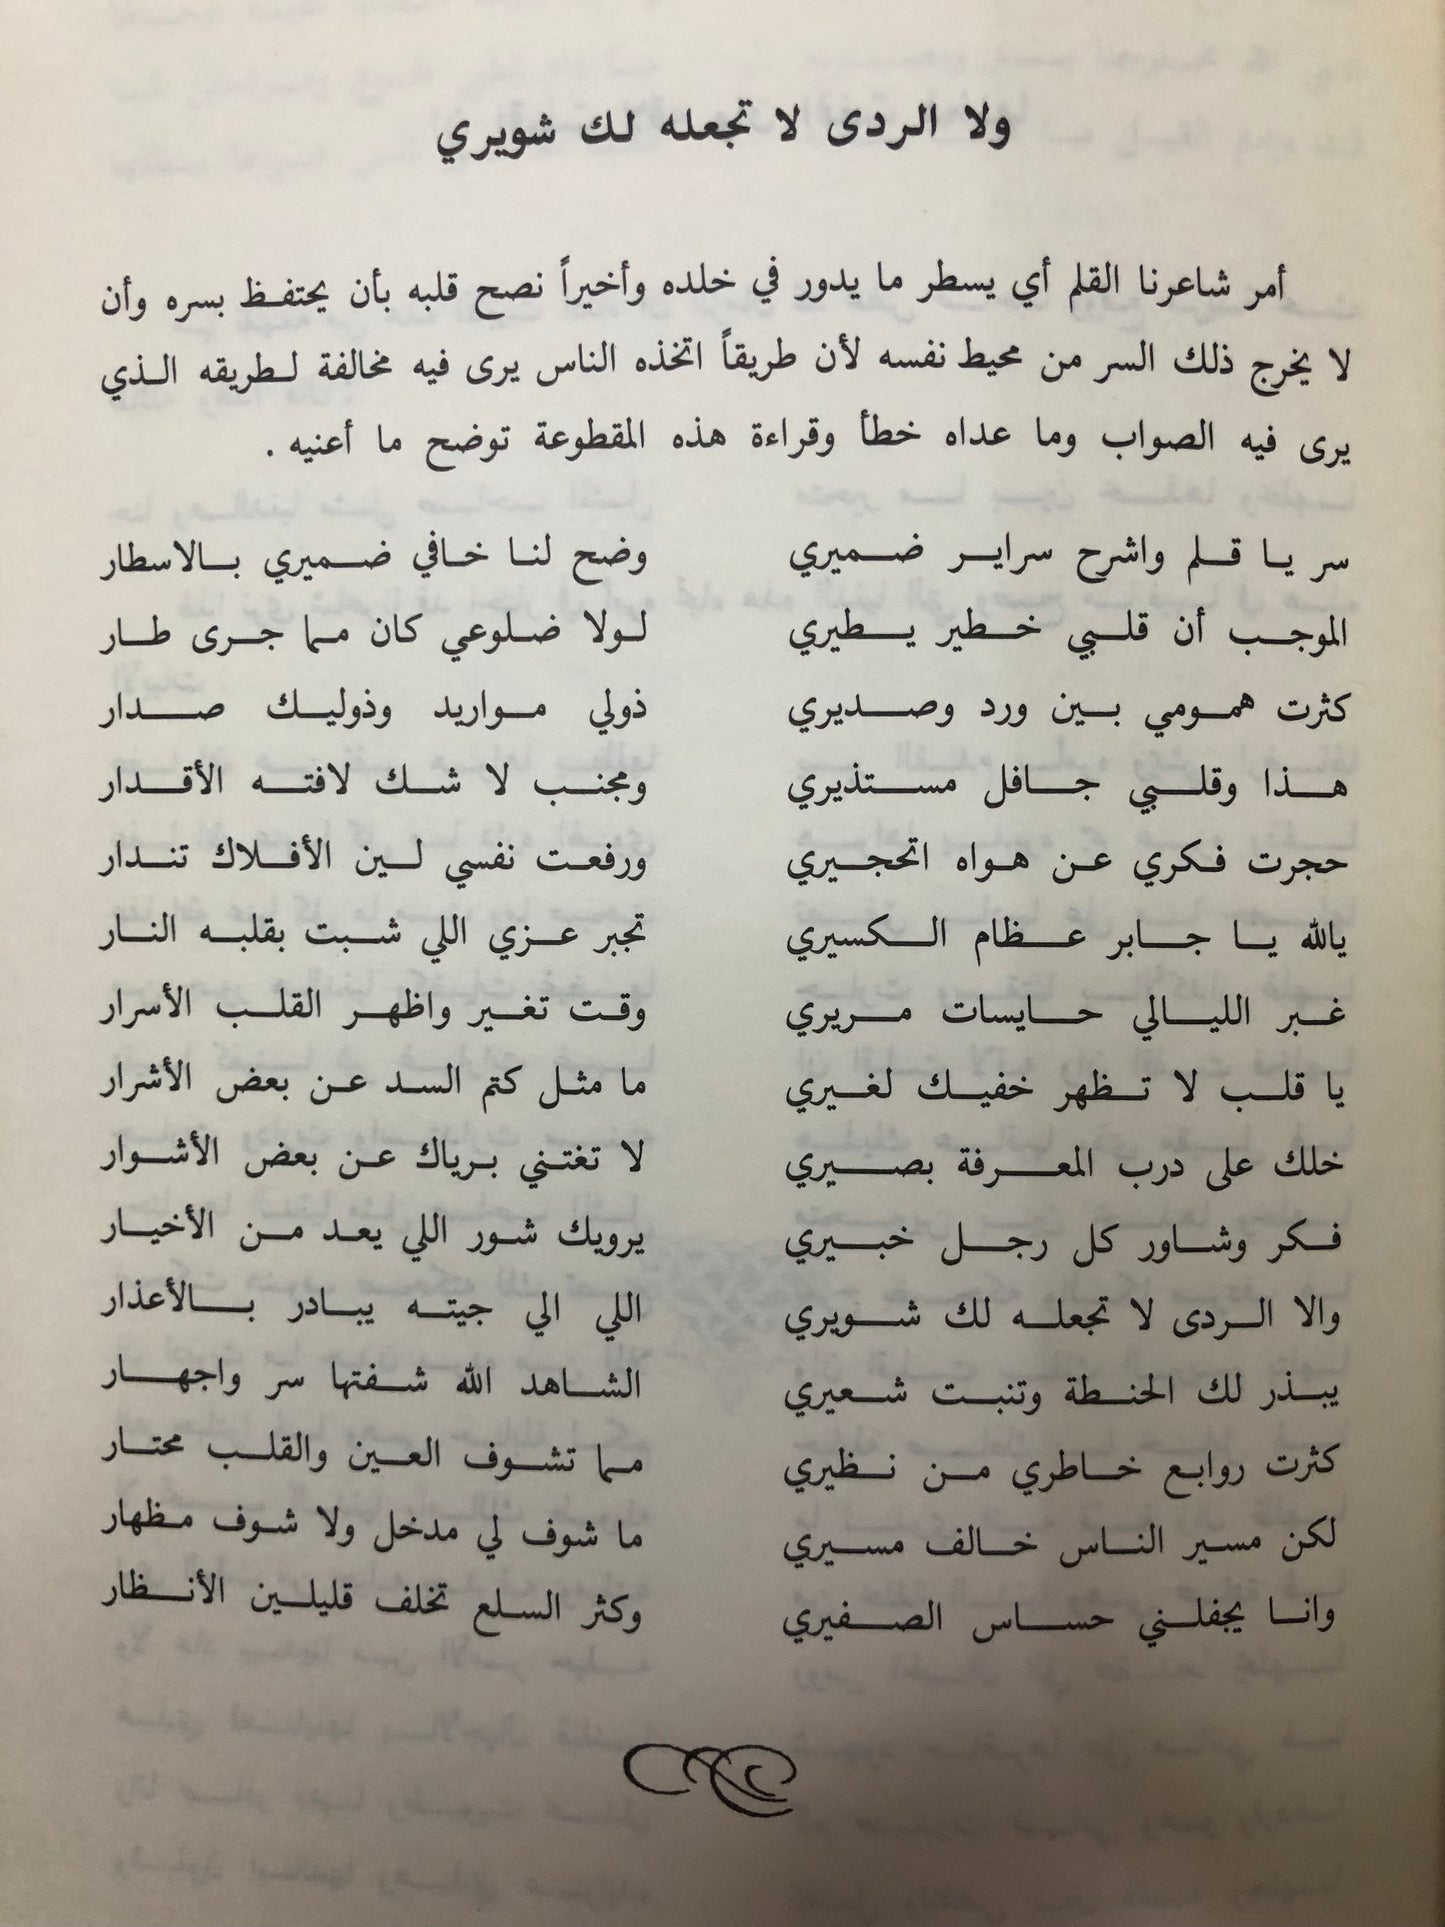 ولا الردى لا تجعله لك شويري
أمر شاعرنا القلم أي يسطر ما يدور في خلده وأخيراً نصح قلبه بأن يحتفظ بسره وأن
لا يخرج ذلك السر من محيط نفسه لأن طريقاً اتخذه الناس يرى فيه مخالفة لطريقه الذي
يرى فيه الصواب وما عداه خطأ وقراءة هذه المقطوعة توضح ما أعنيه .
سر يا قلم واشرح سراير ضميري وضح لنا خافي ضميري بالاسطار
الموجب أن قلبي خطير يطيري لولا ضلوعي كان مما جرى طار
كثرت همومي بين ورد وصديري ذولي مواريد وذوليك صدار
هذا وقلبي جافل مستذيري ومجنب لا شك لافته الأقدار
حجرت فكري عن هواه اتحجيري ورفعت نفسي لين الأفلاك تندار
يالله يا جابر عظام الكسيري تجبر عزي اللي شبت بقلبه النار
غبر الليالي حايسات مريري وقت تغير واظهر القلب الأسرار
يا قلب لا تظهر خفيك لغيري ما مثل كتم السد عن بعض الأشرار
خلك على درب المعرفة بصيري لا تغتني برياك عن بعض الأشوار
فكر وشاور كل رجل خبيري يرويك شور اللي يعد من الأخيار
والا الردى لا تجعله لك شويري اللي الي جيته يبادر بالأعذار
يبذر لك الحنطة وتنبت شعيري الشاهد الله شفتها سر واجهار
كثرت روابع خاطري من نظيري مما تشوف العين والقلب محتار
لكن مسير الناس خالف مسيري ما شوف لي مدخل ولا شوف مظهار
وانا يجفلني حساس الصفيري وكثر السلع تخلف قليلين الأنظار